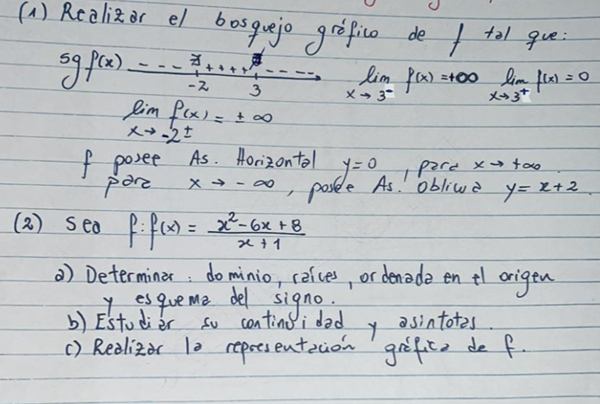 (1) Realizar el bosquejo gráfico de f tal que:
sg f(x) - - - - + + + + - - - -
-2 3
lim f(x) = +∞ lim f(x) = 0
x → 3⁻ x → 3⁺
lim f(x) = ± ∞
x → -2±
f posee As. Horizontal y=0, para x → +∞
para x → -∞, posée As. Oblicua y = x+2.
(2) Sea f: f(x) = x²-6x+8
x+1
a) Determinar: dominio, raíces, ordenada en el origen
y esquema del signo.
b) Estudiar su continuidad y asíntotas.
c) Realizar la representación gráfica de f.